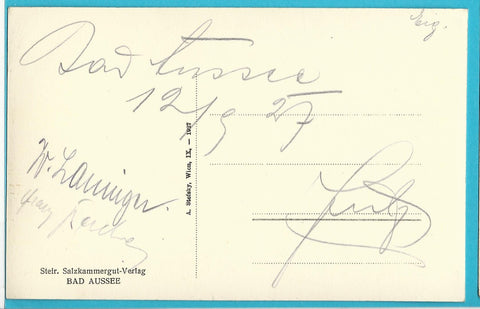 Eig.
Bad Aussee
12/9 27
W. Laninger.
Fritz
A. Stefsky, Wien, IX. — 1927
Steir. Salzkammergut-Verlag
BAD AUSSEE